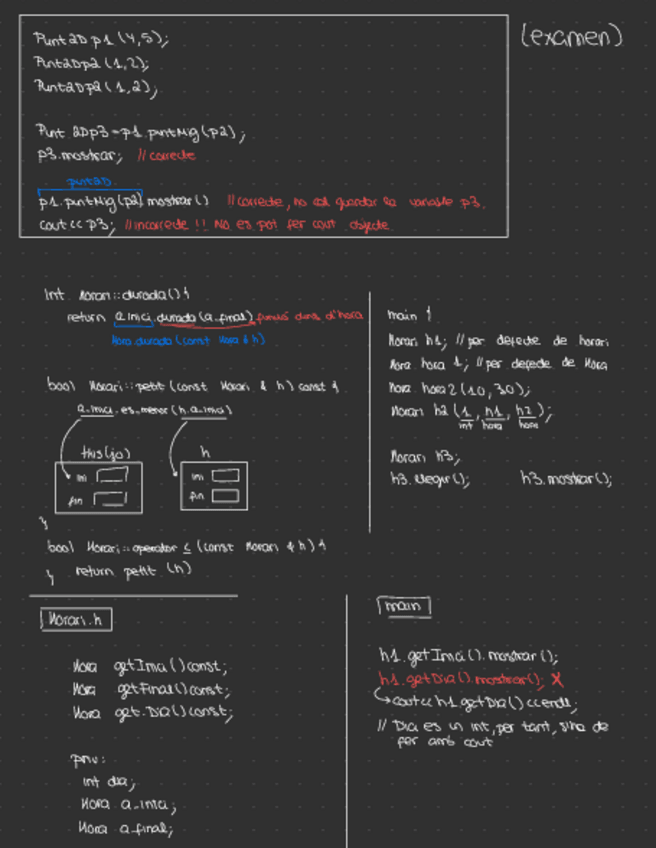 (examen)
Punt2D p1 (4,5);
Punt2Dp2 (1,2);
Punt2Dp2 (1,2);
Punt 2Dp3=p1.puntMig(p2);
p3.mostrar; //correcte
punt2D
p1.puntMig(p2).mostrar() //correcte, no cal guardar la variable p3.
cout<< p3; //incorrecte !! No es pot fer cout objecte
int Horari::durada(){
return a_inici.durada(a_final) funció dins d'hora
Hora.durada(const Hora & h)
bool Horari::petit (const Horari & h) const {
a_inici.es_menor(h.a_inici)
this(jo)
ini
fin
h
ini
fin
}
bool Horari::operator < (const Horari & h) {
return petit (h)
}
main {
Horari h1; //per defecte de horari
Hora hora 1; //per defecte de Hora
Hora hora2(10,30);
Horari h2 (1, h1, h2);
int hora hora
Horari h3;
h3.llegir(); h3.mostrar();
Horari.h
Hora getInici()const;
Hora getFinal()const;
Hora get.Dia()const;
priv:
int dia;
Hora a_inici;
Hora a_final;
main
h1.getInici().mostrar();
h1.getDia().mostrar(); X
cout<< h1.getDia()<<endl;
// Dia es un int, per tant, s'ha de
fer amb cout